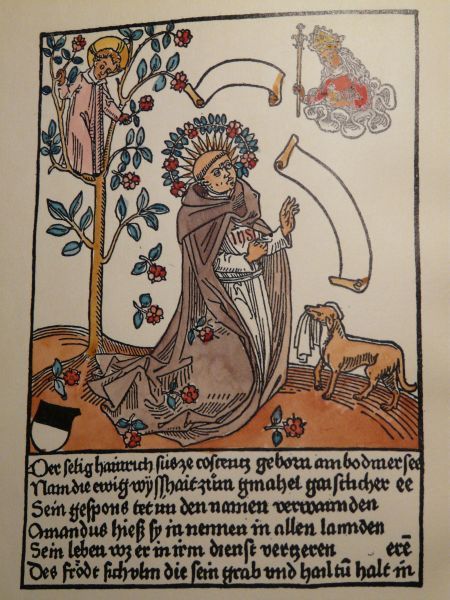 IHS
Der selig hainrich süs ze costentz geborn am bodmer see
Nam die ewig wyßhait zům gmahel gaistlicher ee
Sein gespons tet im den namen verwannden
Amandus hieß sy in nennen in allen lannden
Sein leben wz er in irm dienst vertzeren erē
Des frödt sich vlm die sein grab vnd hailtū halt in